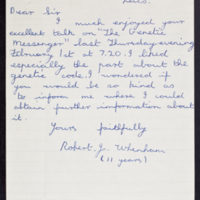 Dear Sir
I much enjoyed your
excellent talk on "The Genetic
Messenger" last Thursday evening
February 1st at 7.20. I liked
especially the part about the
genetic code. I wondered if
you would be so kind as
to inform me where I could
obtain further information about
it.
Yours faithfully
Robert. G. Whenham
(11 years)